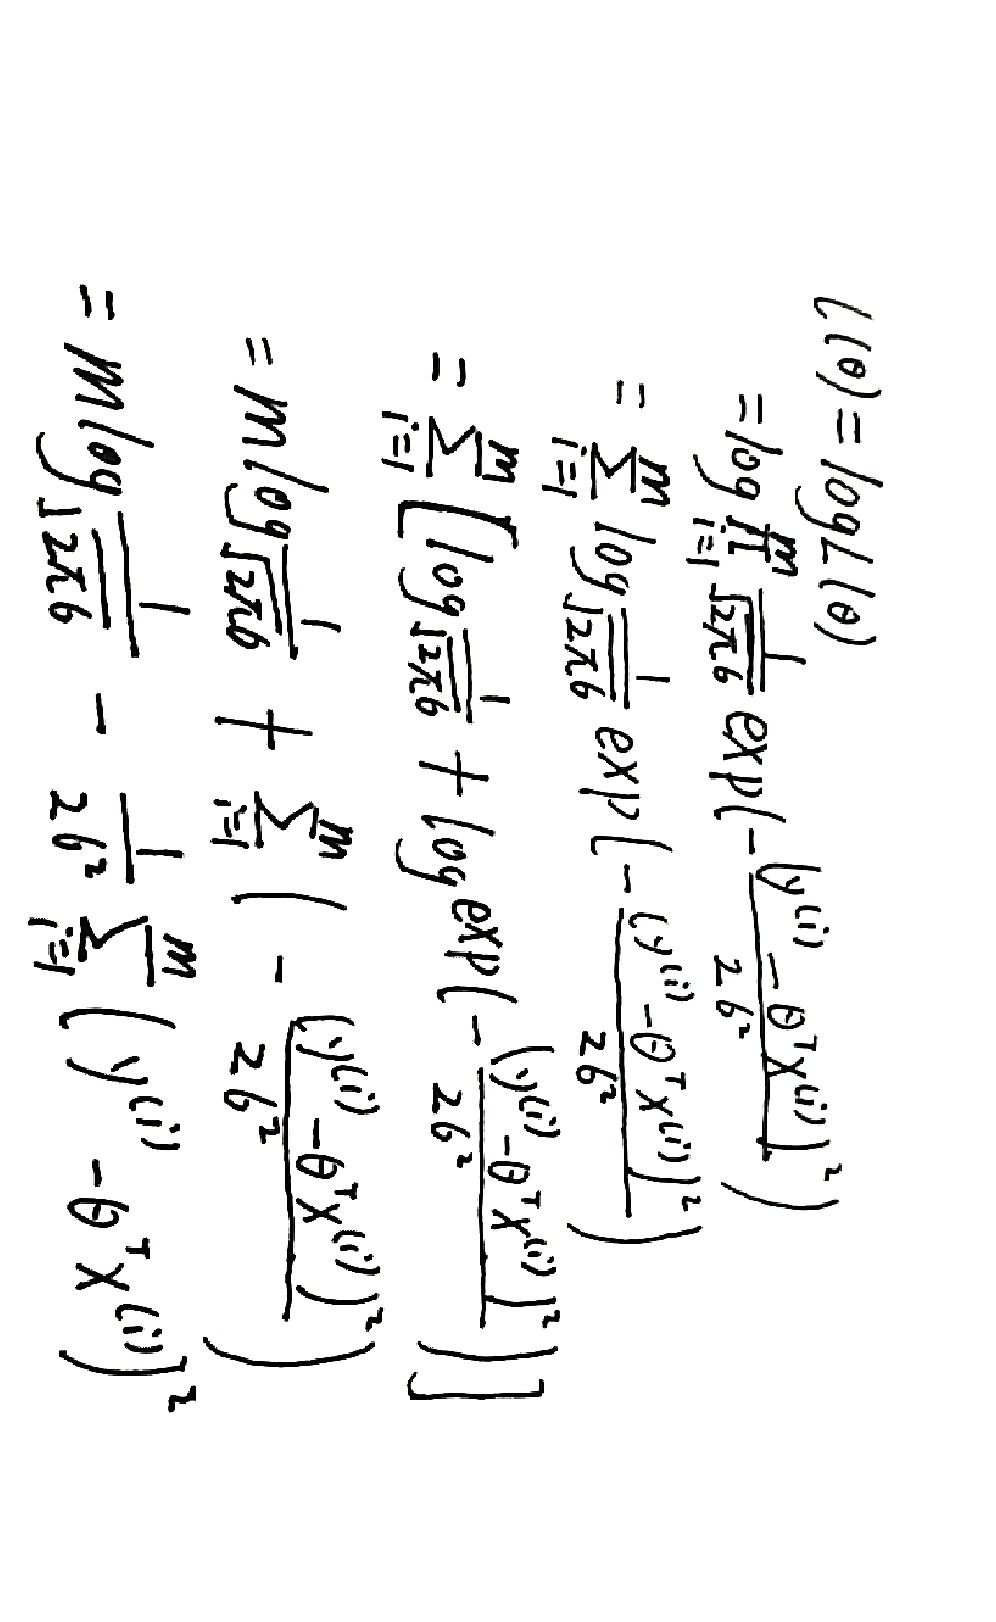 l(θ) = log L(θ)
= log ∏_{i=1}^{m} \frac{1}{\sqrt{2π}σ} exp(-\frac{(y^{(i)} - θ^T x^{(i)})^2}{2σ^2})
= ∑_{i=1}^{m} log \frac{1}{\sqrt{2π}σ} exp(-\frac{(y^{(i)} - θ^T x^{(i)})^2}{2σ^2})
= ∑_{i=1}^{m} [log \frac{1}{\sqrt{2π}σ} + log exp(-\frac{(y^{(i)} - θ^T x^{(i)})^2}{2σ^2})]
= m log \frac{1}{\sqrt{2π}σ} + ∑_{i=1}^{m} (-\frac{(y^{(i)} - θ^T x^{(i)})^2}{2σ^2})
= m log \frac{1}{\sqrt{2π}σ} - \frac{1}{2σ^2} ∑_{i=1}^{m} (y^{(i)} - θ^T x^{(i)})^2